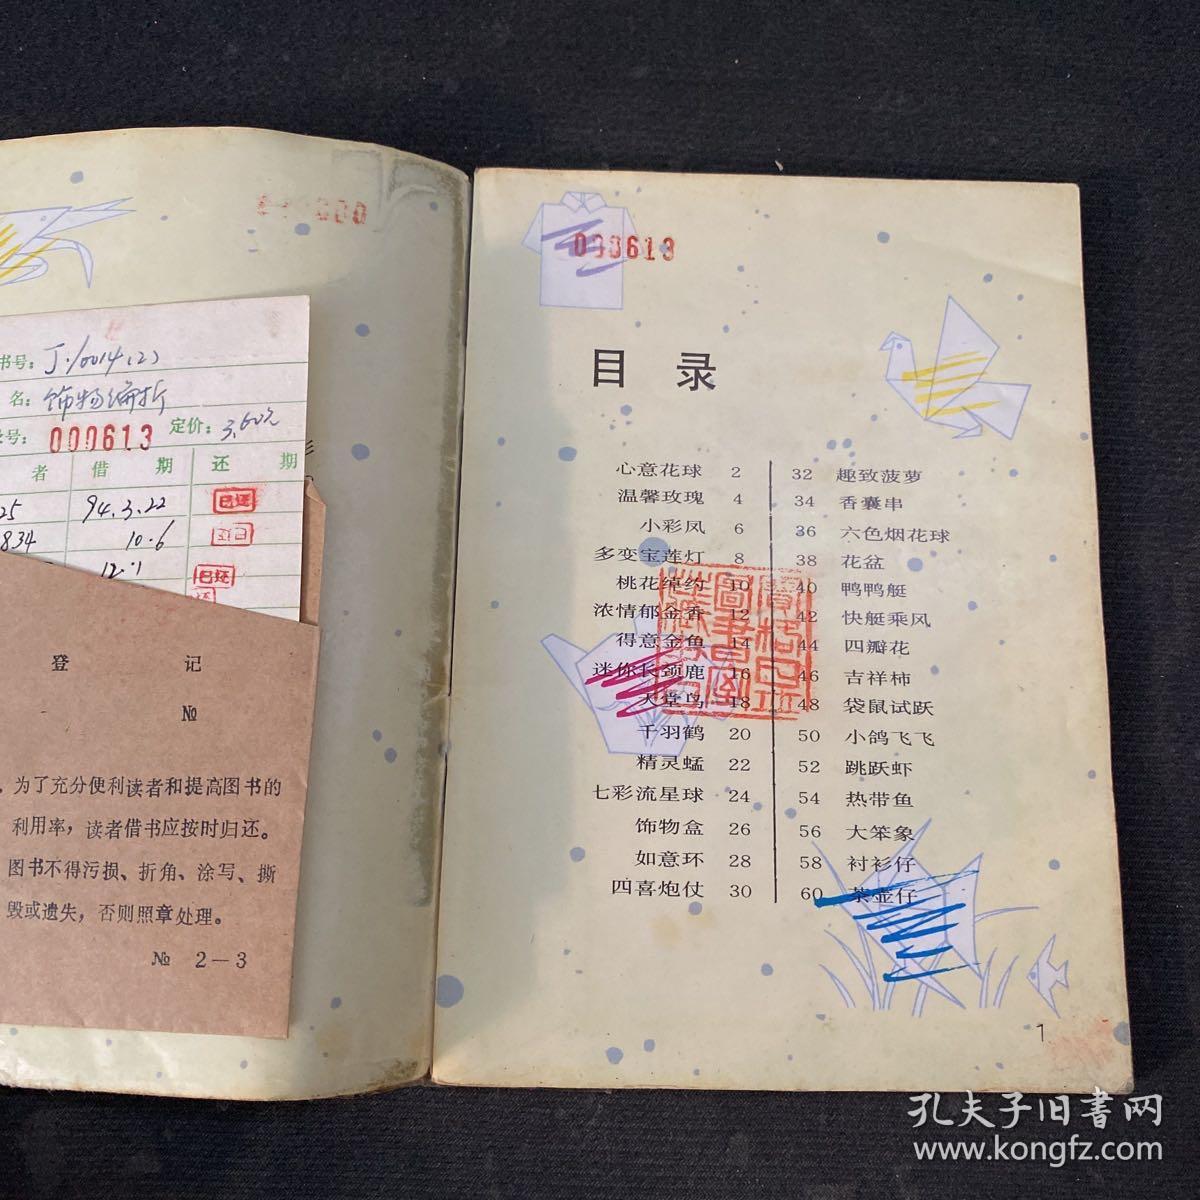 000
书号: J·10014(2)
名: 饰物编折
号: 000613 定价: 3.60元
者 借 期 还 期
25 94.3.22 已还
834 10.6
12.1 已还
登 记
№
为了充分便利读者和提高图书的
利用率，读者借书应按时归还。
图书不得污损、折角、涂写、撕
毁或遗失，否则照章处理。
№ 2－3
000613
目 录
心意花球 2
温馨玫瑰 4
小彩凤 6
多变宝莲灯 8
桃花绰约 10
浓情郁金香 12
得意金鱼 14
迷你长颈鹿 16
天堂鸟 18
千羽鹤 20
精灵蜢 22
七彩流星球 24
饰物盒 26
如意环 28
四喜炮仗 30
32 趣致菠萝
34 香囊串
36 六色烟花球
38 花盆
40 鸭鸭艇
42 快艇乘风
44 四瓣花
46 吉祥柿
48 袋鼠试跃
50 小鸽飞飞
52 跳跃虾
54 热带鱼
56 大笨象
58 衬衫仔
60 茶壶仔
1
孔夫子旧书网
www.kongfz.com